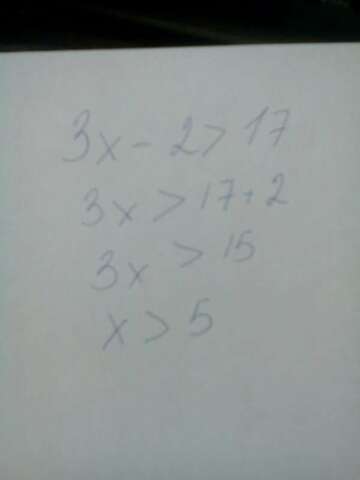 3x - 2 > 17
3x > 17 + 2
3x > 15
x > 5